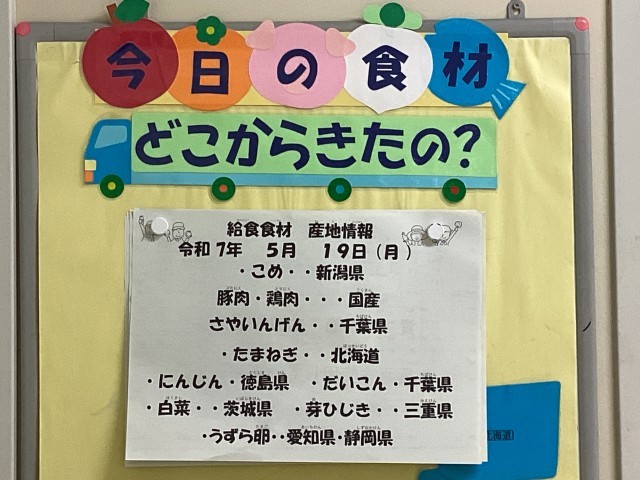 今日の食材
どこからきたの?
給食食材　産地情報
令和7年　5月　19日(月)
・こめ・・新潟県
豚肉・鶏肉・・・国産
さやいんげん・・千葉県
・たまねぎ・・北海道
・にんじん・徳島県　・だいこん・千葉県
・白菜・・茨城県　・芽ひじき・・三重県
・うずら卵・・愛知県・静岡県
北海道